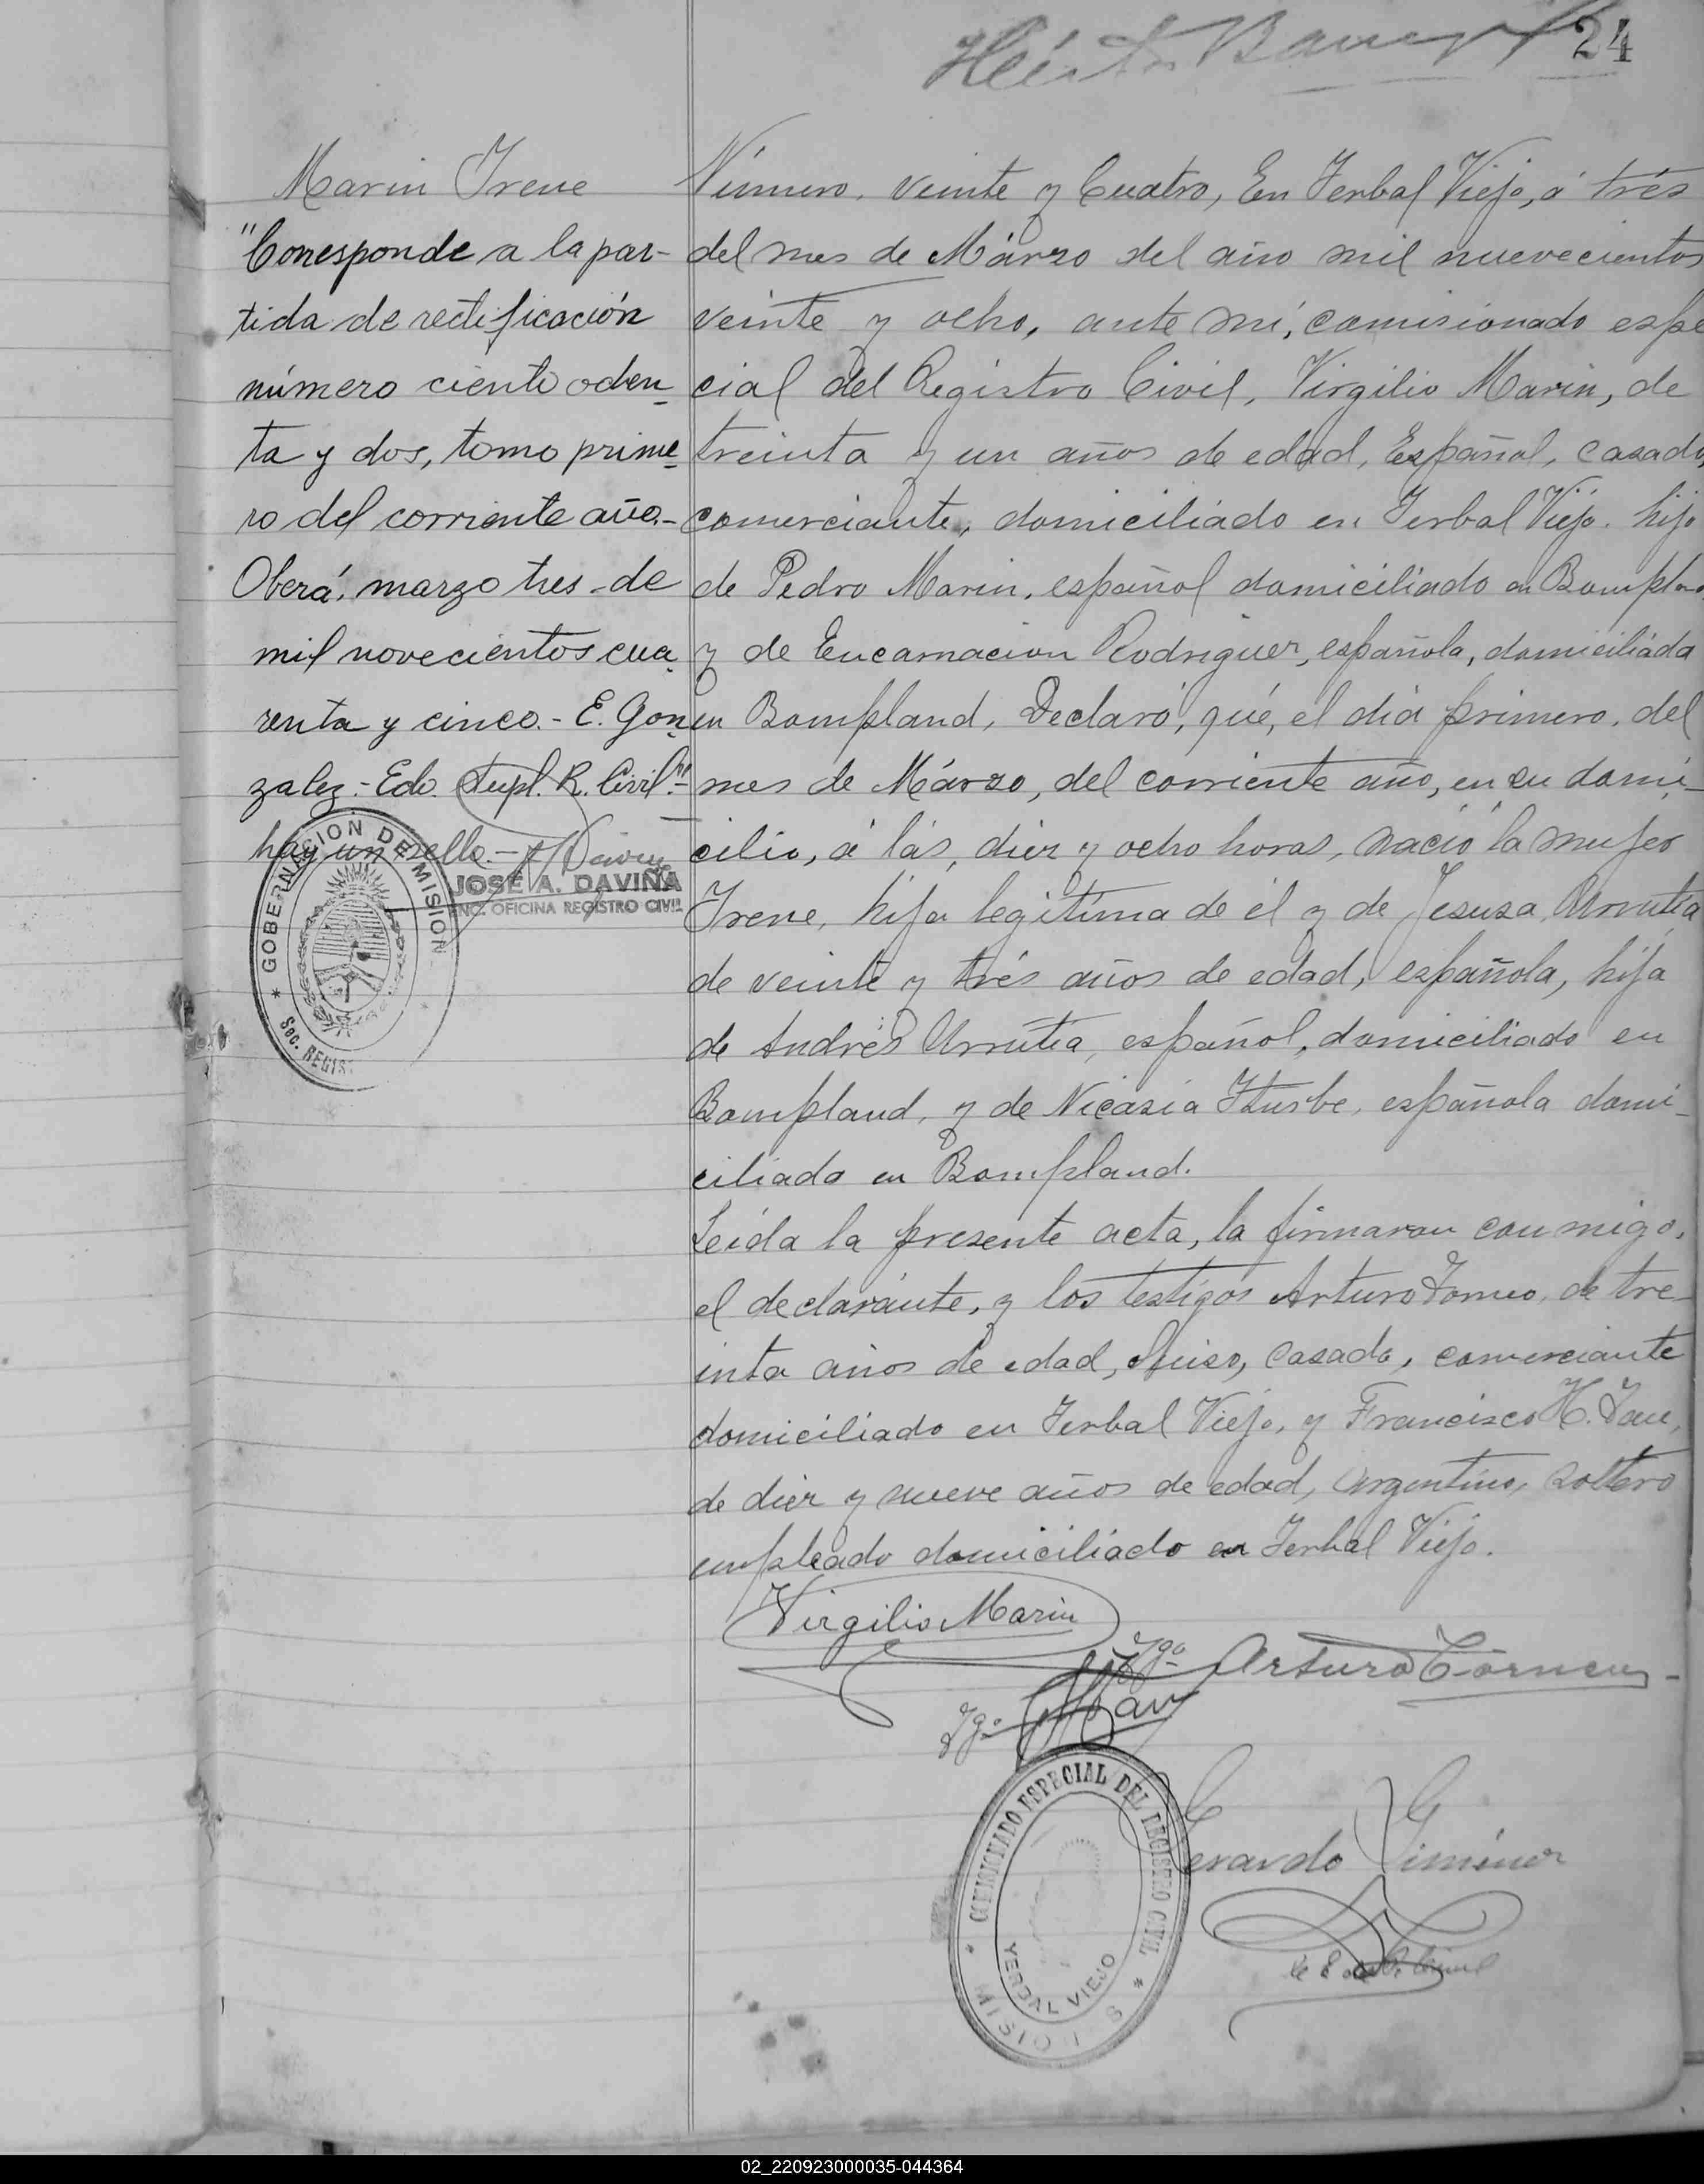 24
Marin Irene
"Corresponde a la par-
tida de rectificación
número ciento ochen
ta y dos, tomo prime
ro del corriente año.-
Oberá, marzo tres de
mil novecientos cua
renta y cinco.- E. Gon
zalez.- Edo. Supl. R. Civil"-
hay un sello.-
JOSÉ A. DAVIÑA
ENC. OFICINA REGISTRO CIVIL
GOBERNACION DE MISIONES
Sec. REGIS
Número. veinte y Cuatro, En Yerbal Viejo, á trés
del mes de Márzo del año mil nuevecientos
veinte y ocho, ante mi, comisionado espe
cial del Registro Civil, Virgilio Marin, de
treinta y un años de edad, Español, casado,
comerciante, domiciliado en Yerbal Viejo. hijo
de Pedro Marin, español domiciliado en Bompland
y de Encarnacion Rodriguez, española, domiciliada
en Bompland, Declaró, qué, el día primero, del
mes de Márzo, del corriente año, en su domi-
cilio, á lás, diez y ocho horas, nació la mujer
Irene, hija legitíma de él y de Jesusa Urrutia
de veinte y trés años de edad, española, hija
de Andrés Urrutia, español, domiciliado en
Bompland, y de Nicasia Iturbe, española domi-
ciliada en Bompland.
Leída la presente acta, la firmaron conmigo,
el declaránte, y los testigos Arturo de tre-
inta años de edad, Suiso, Casado, comerciante
domiciliado en Yerbal Viejo, y Francisco H.
de diez y nueve años de edad, argentino, soltero
empleado domiciliado en Yerbal Viejo.
Virgilio Marin
Tgo Arturo
Tgo
COMISIONADO ESPECIAL DEL REGISTRO CIVIL
YERBAL VIEJO
MISIONES
Gerardo Giménez
02_220923000035-044364